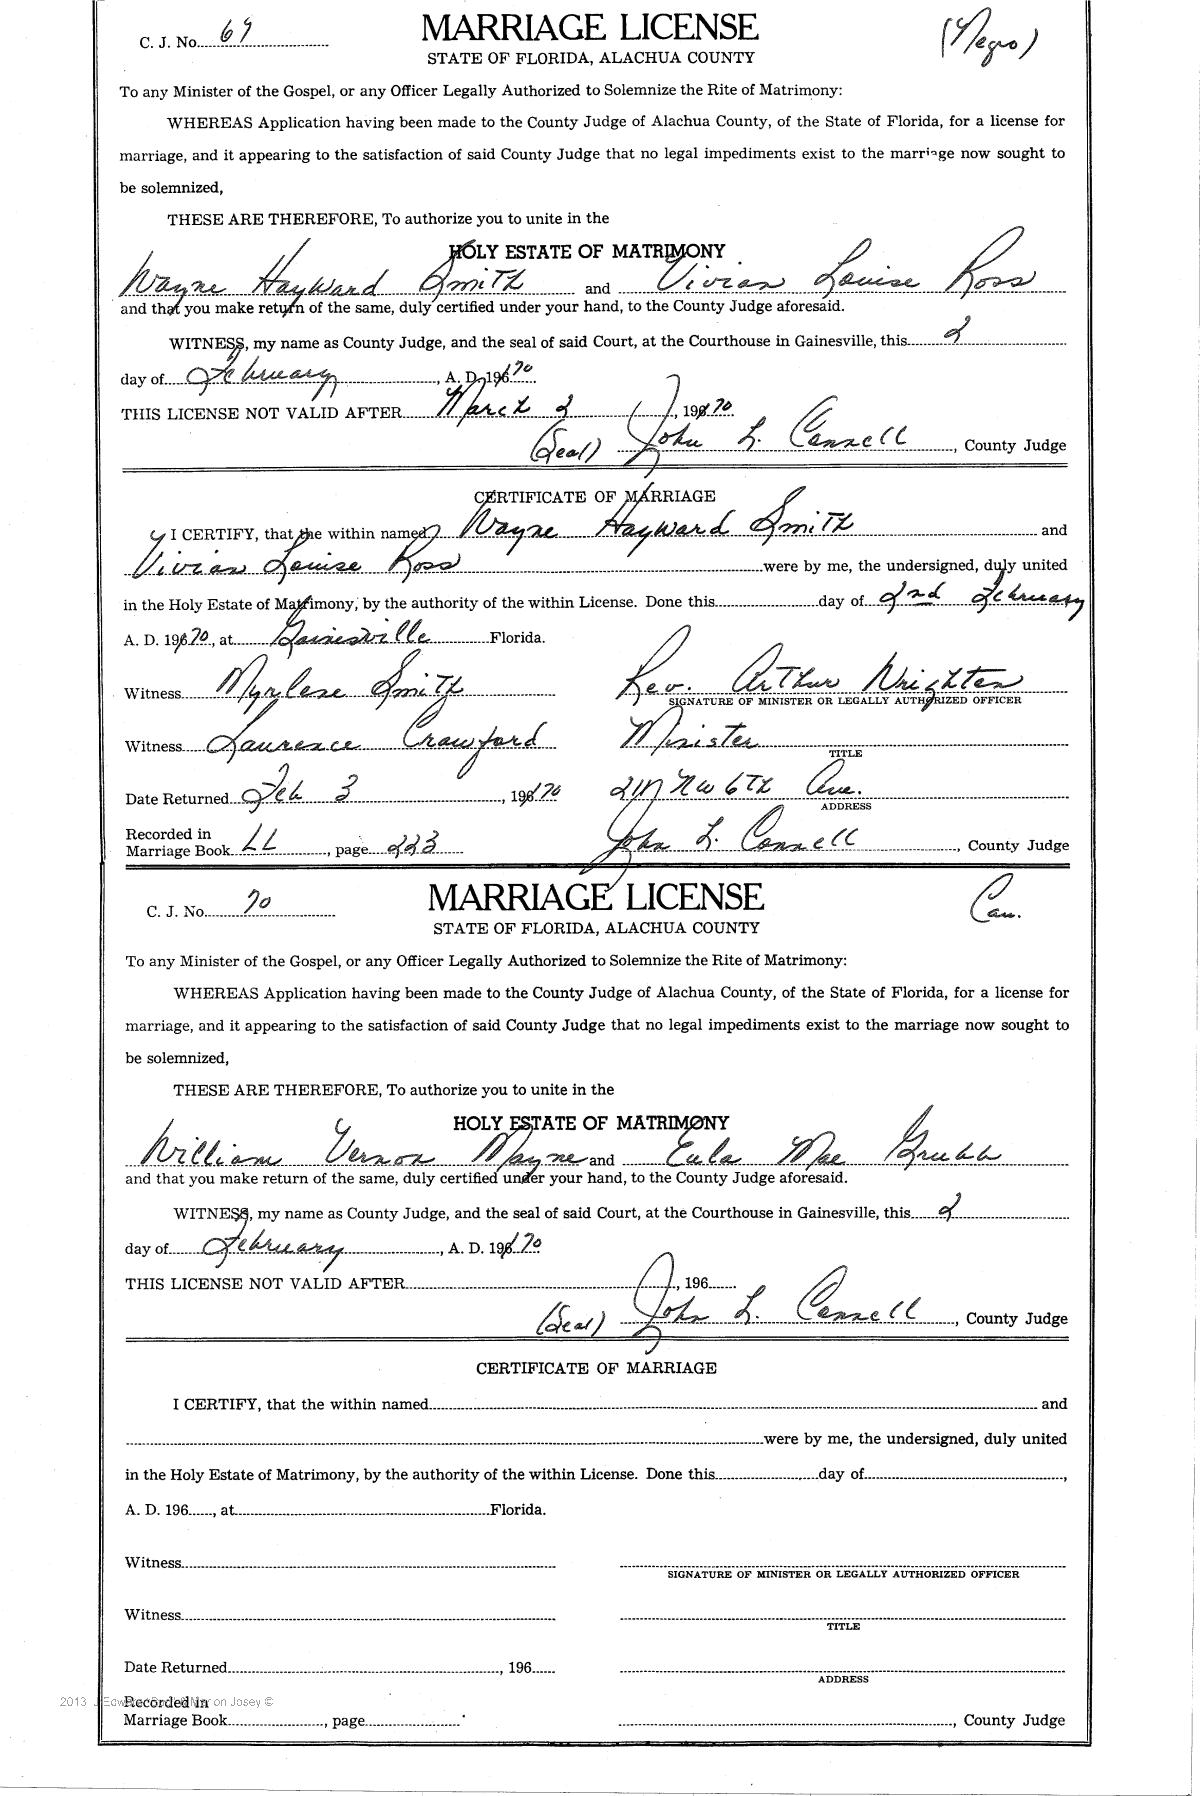 C. J. No. 69 MARRIAGE LICENSE (Negro)
STATE OF FLORIDA, ALACHUA COUNTY
To any Minister of the Gospel, or any Officer Legally Authorized to Solemnize the Rite of Matrimony:
WHEREAS Application having been made to the County Judge of Alachua County, of the State of Florida, for a license for
marriage, and it appearing to the satisfaction of said County Judge that no legal impediments exist to the marriage now sought to
be solemnized,
THESE ARE THEREFORE, To authorize you to unite in the
HOLY ESTATE OF MATRIMONY
Wayne Hayward Smith and Vivian Louise Ross
and that you make return of the same, duly certified under your hand, to the County Judge aforesaid.
WITNESS, my name as County Judge, and the seal of said Court, at the Courthouse in Gainesville, this 2
day of February, A. D. 19670
THIS LICENSE NOT VALID AFTER March 2, 19670
(Seal) John L. Connell, County Judge
CERTIFICATE OF MARRIAGE
I CERTIFY, that the within named Wayne Hayward Smith and
Vivian Louise Ross were by me, the undersigned, duly united
in the Holy Estate of Matrimony, by the authority of the within License. Done this day of 2nd February
A. D. 19670, at Gainesville Florida.
Witness Myrlese Smith Rev. Arthur Wrighten
SIGNATURE OF MINISTER OR LEGALLY AUTHORIZED OFFICER
Witness Laurence Crawford Minister
TITLE
Date Returned Feb 3, 19670 2117 NW 6th Ave.
ADDRESS
Recorded in
Marriage Book LL, page 223 John L. Connell, County Judge
C. J. No. 70 MARRIAGE LICENSE Cau.
STATE OF FLORIDA, ALACHUA COUNTY
To any Minister of the Gospel, or any Officer Legally Authorized to Solemnize the Rite of Matrimony:
WHEREAS Application having been made to the County Judge of Alachua County, of the State of Florida, for a license for
marriage, and it appearing to the satisfaction of said County Judge that no legal impediments exist to the marriage now sought to
be solemnized,
THESE ARE THEREFORE, To authorize you to unite in the
HOLY ESTATE OF MATRIMONY
William Vernon Mayne and Eula Mae Grubb
and that you make return of the same, duly certified under your hand, to the County Judge aforesaid.
WITNESS, my name as County Judge, and the seal of said Court, at the Courthouse in Gainesville, this 2
day of February, A. D. 19670
THIS LICENSE NOT VALID AFTER, 196
(Seal) John L. Connell, County Judge
CERTIFICATE OF MARRIAGE
I CERTIFY, that the within named and
were by me, the undersigned, duly united
in the Holy Estate of Matrimony, by the authority of the within License. Done this day of,
A. D. 196, at Florida.
Witness
SIGNATURE OF MINISTER OR LEGALLY AUTHORIZED OFFICER
Witness
TITLE
Date Returned, 196
ADDRESS
2013 Josey ©
Recorded in
Marriage Book, page, County Judge